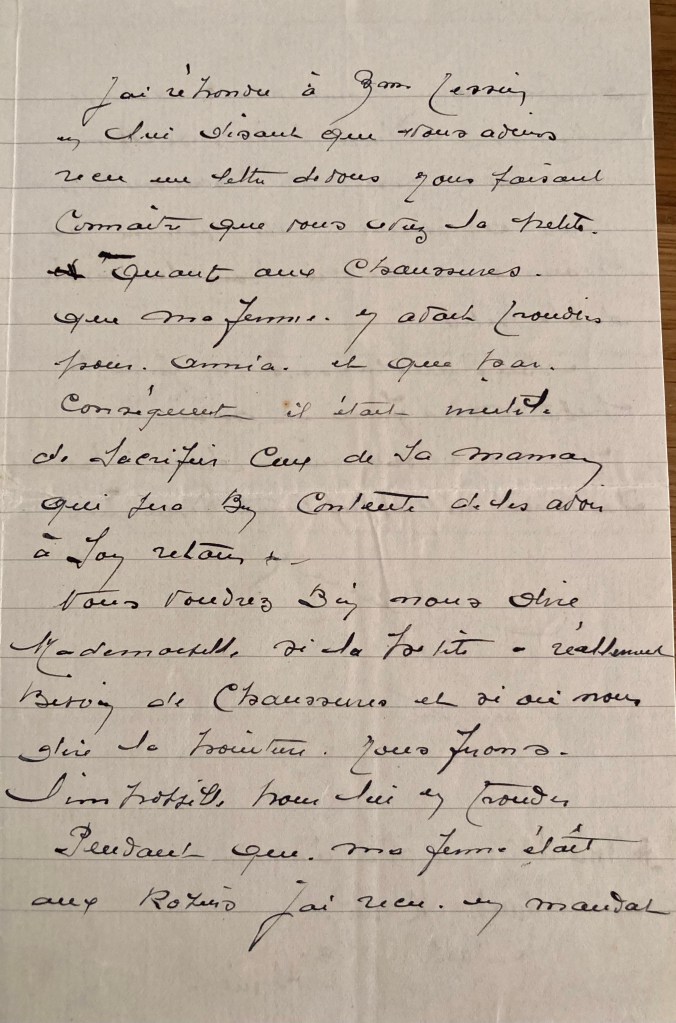 J'ai répondu à Mme
en lui disant que nous avions
recu une lettre de vous nous faisant
Connaitre que vous aviez la petite.
Quant aux Chaussures.
que ma femme. en avait trouvées
pour. Annia. et que par.
Conséquent il était inutile
de Sacrifier Ceux de Sa Maman
qui sera Bien Contente de les avoir
à Son retour
Vous voudrez Bien nous dire
Mademoiselle si la petite a réellement
Besoin de Chaussures et si oui nous
dire la pointure. Nous ferons.
l'impossible pour lui en trouver
Pendant que. ma femme était
aux j'ai recu. un mandat